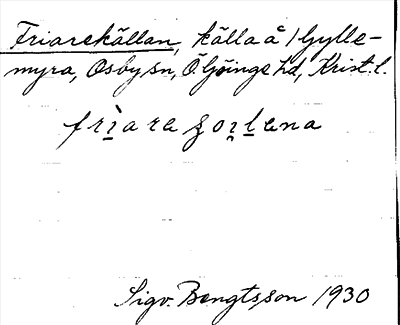 Friarekällan, källa å Gylle-
myra, Osby sn, Ö. Göinge hd, Krist. l.
Sigv. Bengtsson 1930